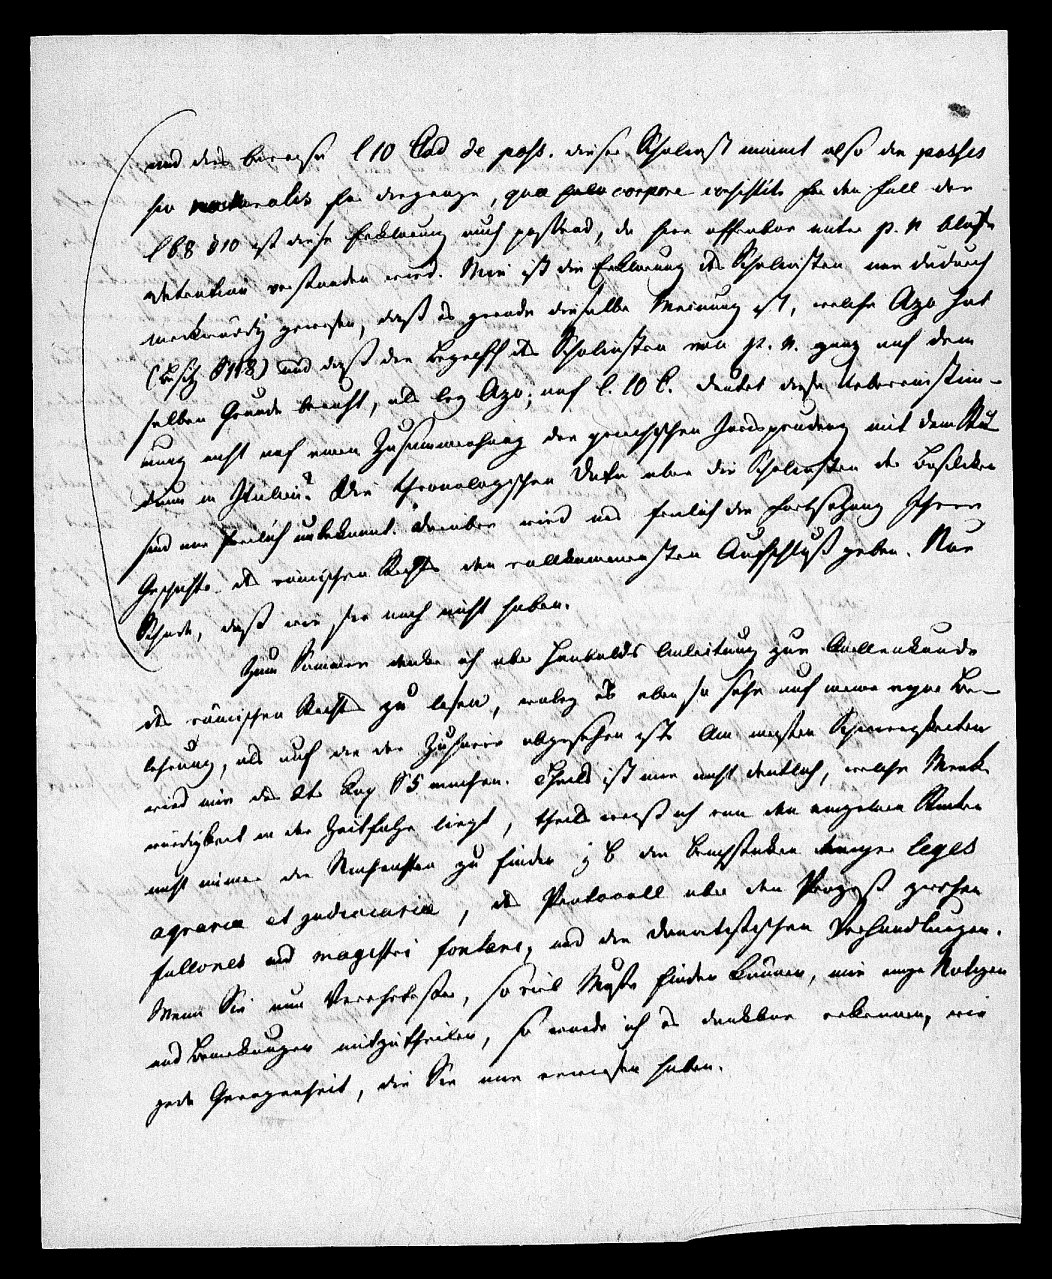 und dies beweise l 10 Cod de poss. dieser Scholiast nimmt also die posses
sio naturalis für diejenige, quae solo corpore consistit. für den Fall der
l 68 § 10 ist diese Erklärung auch passend, da hier offenbar unter p. n bloße
Detention verstanden wird. Mir ist die Erklärung des Scholiasten nur dadurch
merkwürdig gewesen, daß es gerade dieselbe Meinung ist, welche Azo hat
(Besitz S 118) und daß der Begriff des Scholiasten von p. n. ganz auf dem
selben Grunde beruht, als bey Azo; auf l. 10 C. deutet diese Uebereinstim-
mung nicht auf einen Zusammenhang der griechischen Jurisprudenz mit dem Stu
dium in Italien? Die chronologischen Data über die Scholiasten der Basiliken
sind mir freilich unbekannt. Darüber wird uns freilich die Fortsetzung Ihrer
Geschichte des römischen Rechts den vollkommensten Aufschluß geben. Nur
Schade, daß wir sie noch nicht haben.
Zum Sommer denke ich über Haubolds Anleitung zur Quellenkunde
des römischen Rechts zu lesen, wobey es eben so sehr auf meine eigne Be-
lehrung, als auf die der Zuhörer abgesehen ist. Am meisten Schwierigkeiten
wird mir das 2te Cap § 5 machen. Theils ist mir nicht deutlich, welche Merk
würdigkeit in der Zeitfolge liegt, theils weiß ich von den einzelnen Stücken
nicht immer die Nachrichten zu finden z B den Bruchstücken einiger leges
agrariae et judiciariae, das Protocoll über den Prozeß zwischen
fullones und magistri fontani, und den donatistischen Verhandlungen.
Wenn Sie nun Verehrtester, so viel Muße finden können, mir einige Notizen
und Bemerkungen mitzutheilen, so werde ich es dankbar erkennen, wie
jede Gewogenheit, die Sie mir erwiesen haben.